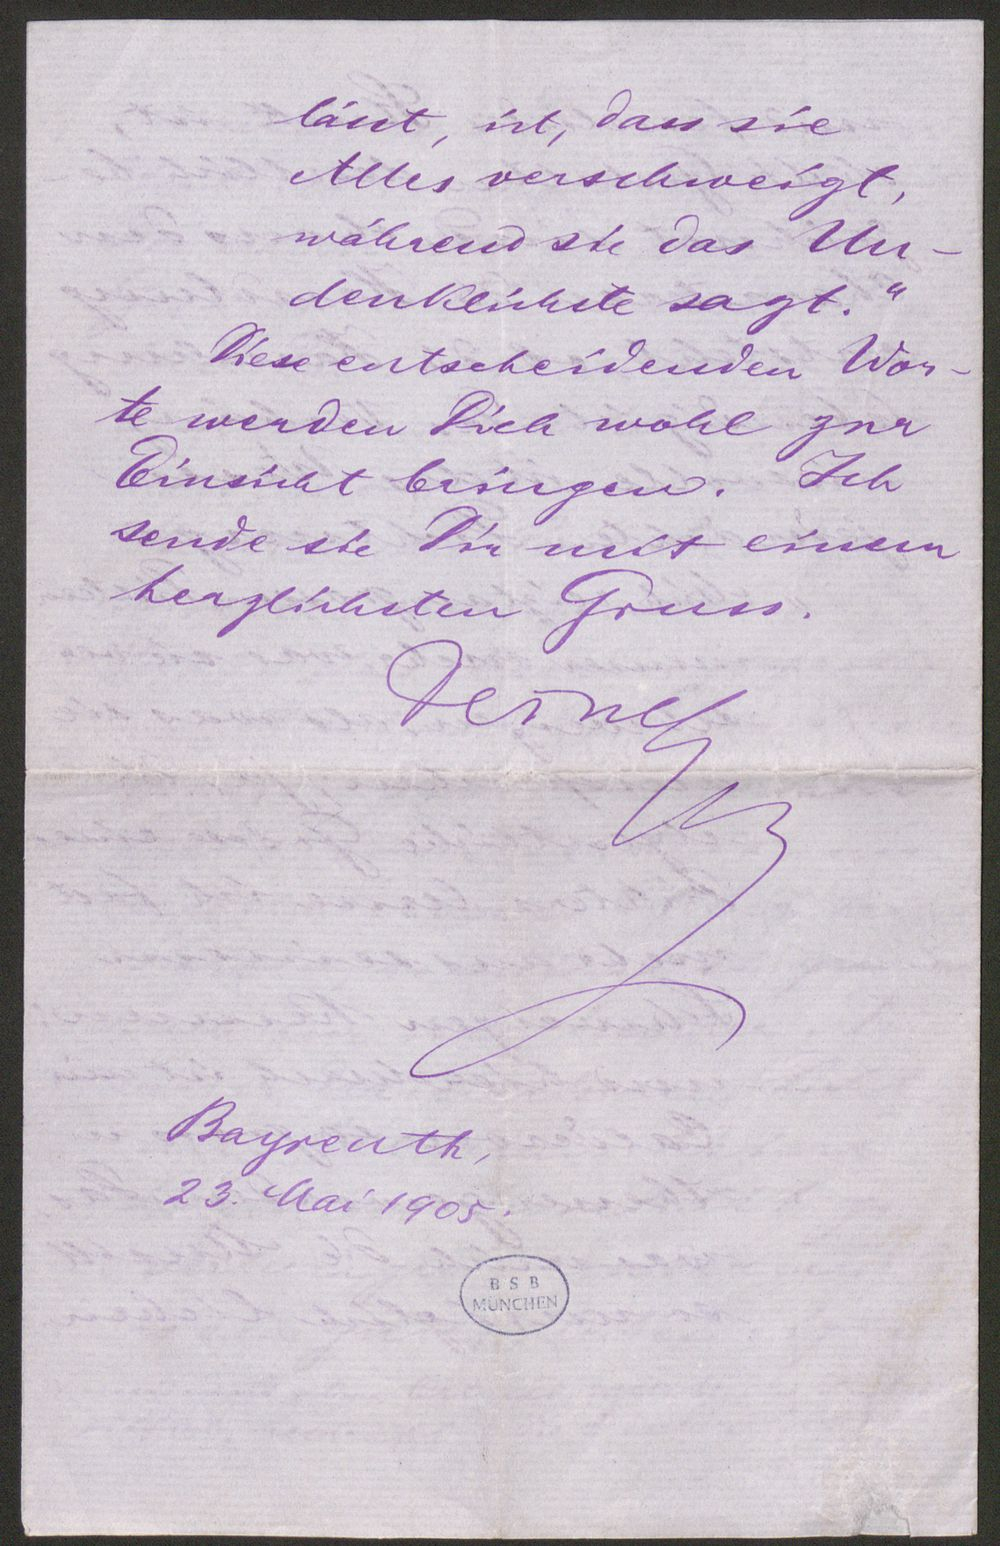 lässt, ist, dass sie
Alles verschweigt,
während sie das Un-
denklichste sagt."
Diese entscheidenden Wor-
te werden Dich wohl zur
Einsicht bringen. Ich
sende sie Dir mit einem
herzlichsten Gruss.
Dein
Bayreuth,
23. Mai 1905.
B S B
MÜNCHEN